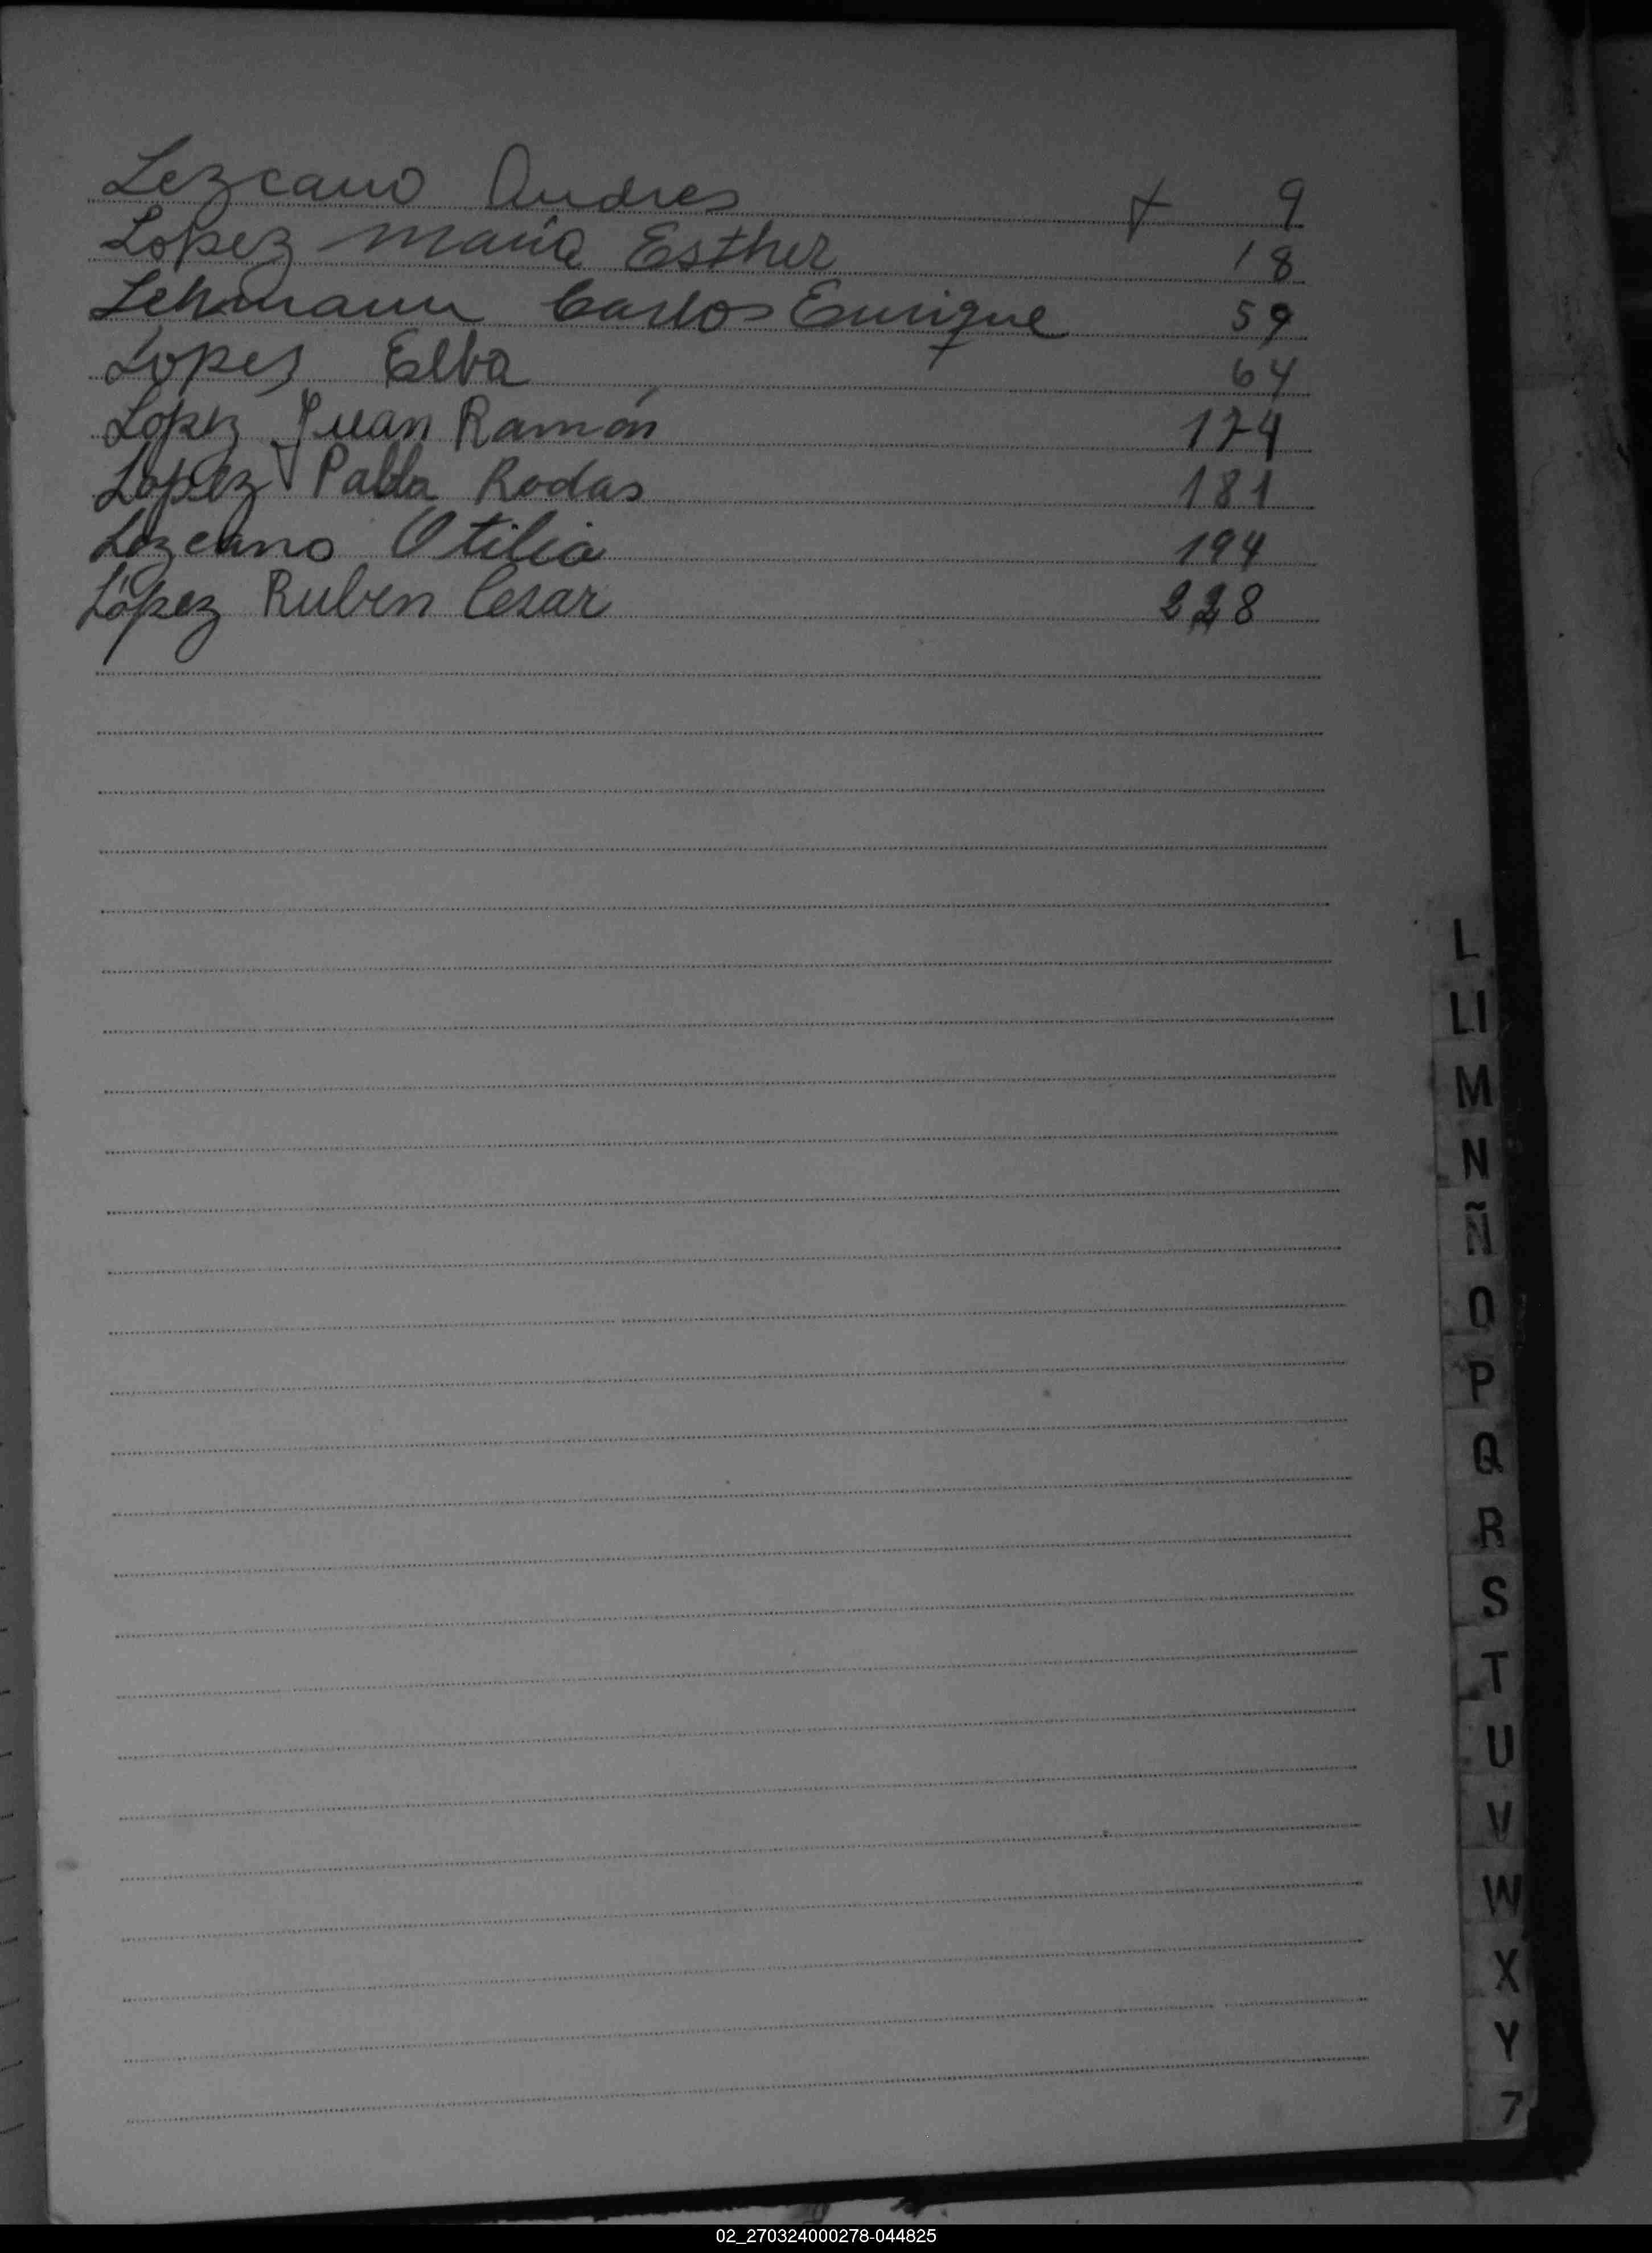 Lezcano Andres + 9
Lopez Maria Esther 18
Lehmann Carlos Enrique 59
Lopes Elba 64
Lopez Juan Ramón 174
Lopez Pabla Rodas 181
Lezcano Otilia 194
López Ruben Cesar 228
L
Ll
M
N
Ñ
O
P
Q
R
S
T
U
V
W
X
Y
Z
02_270324000278-044825